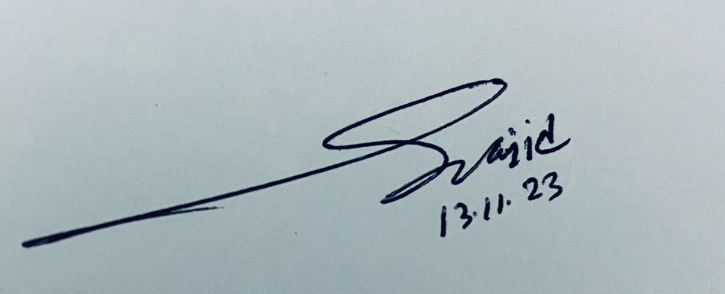 Sajid
13.11.23